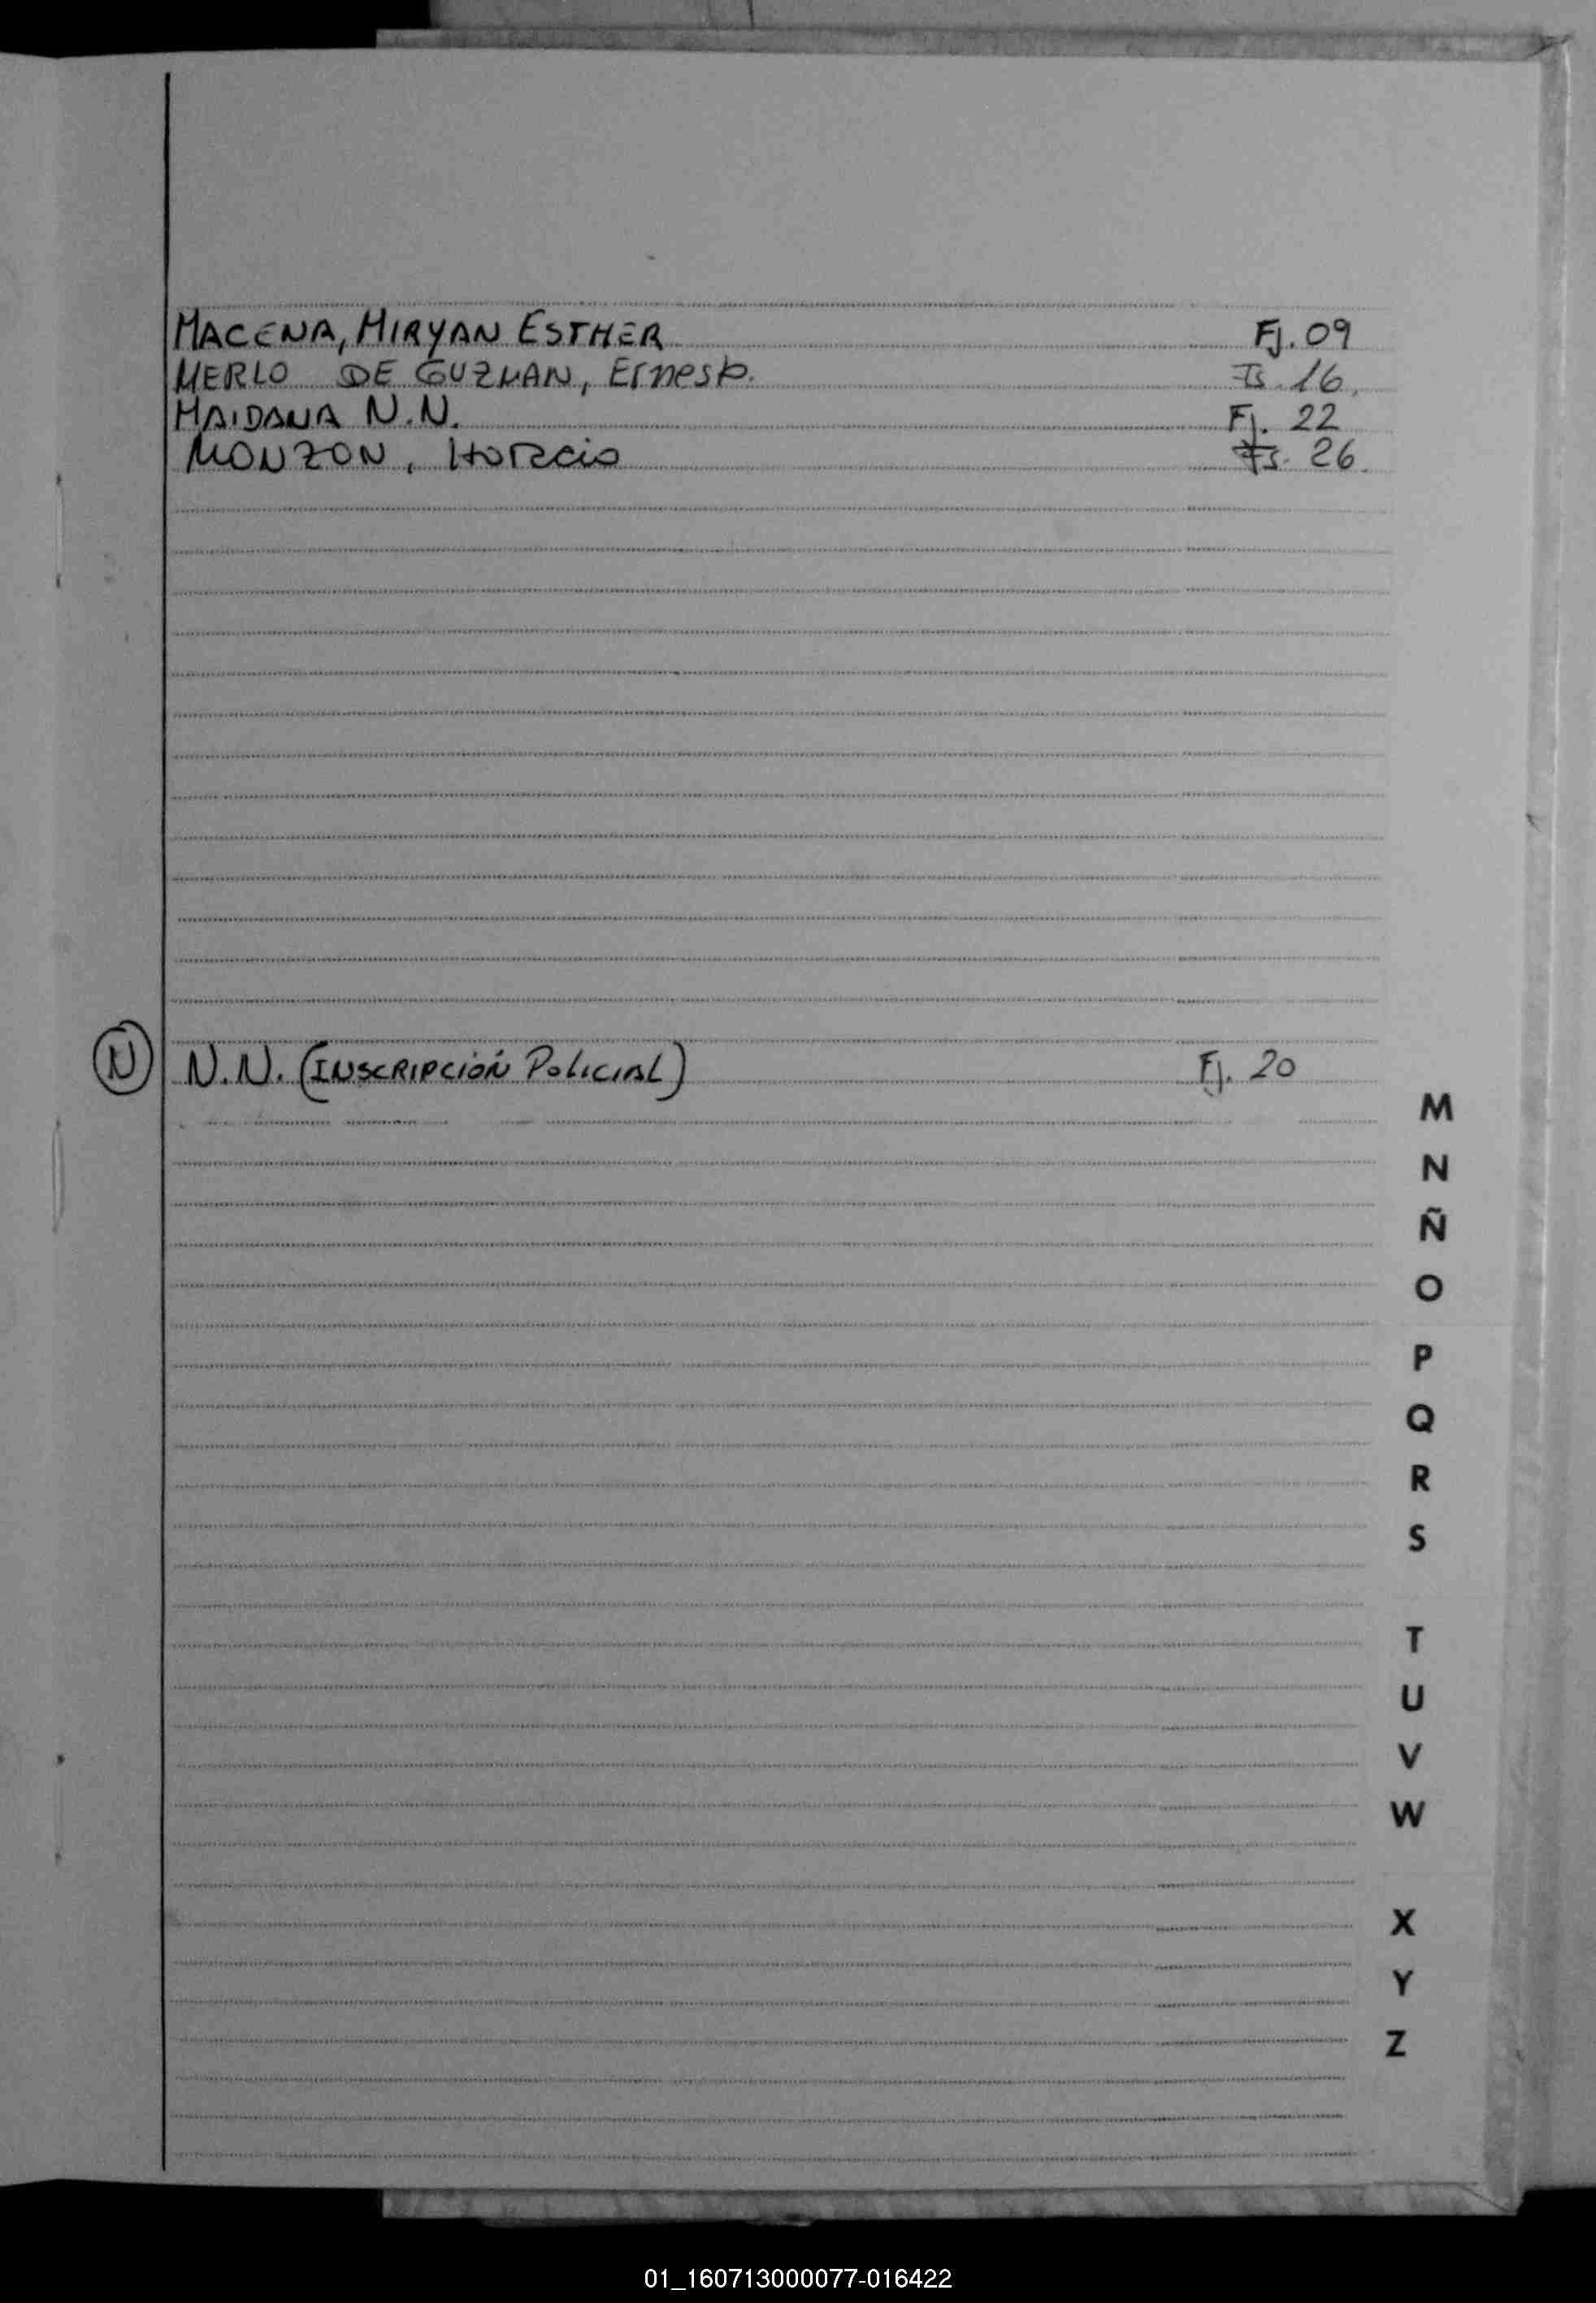 MACENA, MIRYAN ESTHER Fj. 09
MERLO DE GUZMAN, Ernesto. Fs. 16.
MAIDANA N.N. Fj. 22
MONZON, Horacio Fs. 26.
N N.N. (INSCRIPCIÓN POLICIAL) Fj. 20
M
N
Ñ
O
P
Q
R
S
T
U
V
W
X
Y
Z
01_160713000077-016422